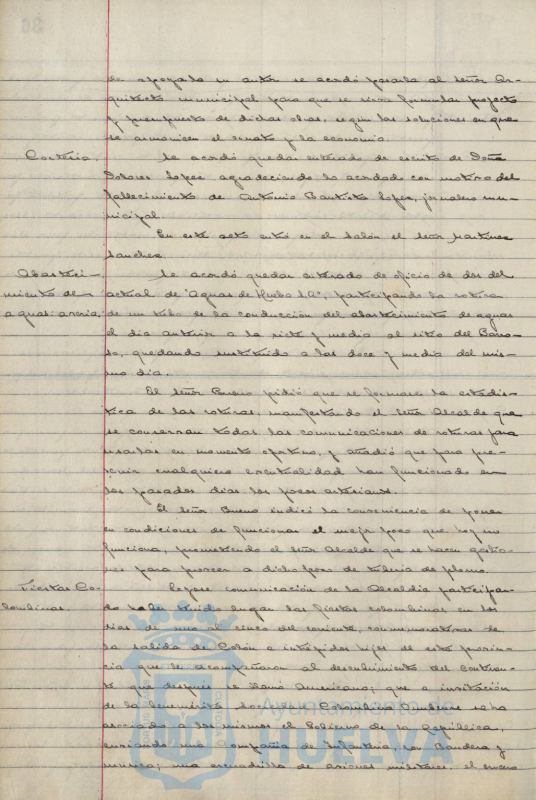 do apoyada su autor se acordó pasarla al señor Ar-
quitecto municipal para que se sirva formular proyecto
y presupuesto de dichas obras, según las soluciones en que
se armonicen el ornato y la economía.
Cortesía. Se acordó quedar enterado de escrito de Doña
Dolores Lopez agradeciendo lo acordado con motivo del
fallecimiento de Antonio Bautista Lopez, jornalero mu-
nicipal
En este acto entró en el Salón el señor Martinez
Sanchez.
Abasteci- Se acordó quedar enterado de oficio de dos del
miento de actual de "Aguas de Huelva S.A", participando la rotura
aguas: averia. de un tubo de la conducción del abastecimiento de aguas
el dia anterior a la siete y media al sitio del
quedando sustituido a las doce y media del mis-
mo dia.
El señor Bueno pidió que se formara la estadis-
tica de las roturas, manifestando el señor Alcalde que
se conservan todas las comunicaciones de roturas para
usarlas en momento oportuno, y añadió que para pre-
venir cualquiera eventualidad han funcionado en
los pasados dias los pozos artesianos.
El señor Bueno indicó la conveniencia de poner
en condiciones de funcionar el mejor pozo que hoy no
funciona, prometiendo el señor Alcalde que se hacen gestio-
nes para proveer a dicho pozo de tuberia de plomo.
Fiestas Co- Leyose comunicación de la Alcaldia participan-
lombinas. do haber tenido lugar las fiestas colombinas en los
dias de uno al cinco del corriente, conmemorativas de
la salida de Colón e intrépidos hijos de esta provin-
cia que le acompañaron al descubrimiento del Continen-
te que despues se llamó Americano; que a invitación
de la benemérita Sociedad Colombina Onubense se ha
asociado a los mismos el Gobierno de la República,
enviando una Compañia de Infanteria, con Bandera y
música; una escuadrilla de aviones militares, el
Ayuntamiento de
HUELVA